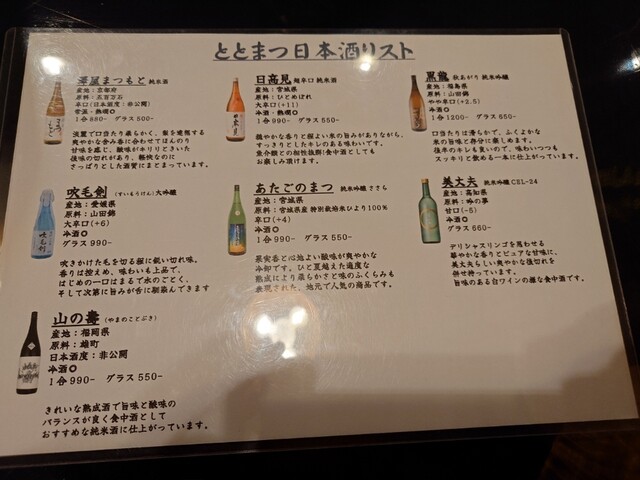 ととまつ日本酒リスト
澤屋まつもと 純米酒
産地：京都府
原料：五百万石
辛口(日本酒度：非公開)
常温・熱燗◎
1合890- グラス500-
淡麗で口当たり柔らかく、梨を連想する
爽やかな含み香に合わせてほんのり
甘味を感じ、酸味がキリリときいた
後味のキレがあり、軽快なのに
さっぱりとした酒質にまとまっています。
日高見 超辛口 純米酒
産地：宮城県
原料：ひとめぼれ
大辛口(+11)
冷酒・熱燗◎
1合990- グラス550-
穏やかな香りと程よい米の旨みがありながら、
すっきりとしたキレのある味わいです。
魚介類との相性抜群!食中酒としても
お楽しみ頂けます。
黒龍 秋あがり 純米吟醸
産地：福島県
原料：山田錦
やや辛口(+2.5)
冷酒◎
1合1200- グラス650-
口当たりは滑らかで、ふくよかな
米の旨味と存分に楽しめます。
後半のキレも良いので、味わいつつも
スッキリと飲める一本に仕上がっています。
吹毛剣 (すいもうけん)大吟醸
産地：愛媛県
原料：山田錦
大辛口(+6)
冷酒◎
グラス990-
吹きかけた毛を切る程に鋭い切れ味。
香りは控えめ、味わいも上品で、
はじめの一口はまるで水のごとく、
そして次第に旨みが舌に馴染んできます
あたごのまつ 純米吟醸 ささら
産地：宮城県
原料：宮城県産 特別栽培米ひより100%
辛口(+4)
冷酒◎
1合990- グラス550-
果実香と心地よい酸味が爽やかな
冷卸です。ひと夏越えた適度な
熟成により柔らかさと味のふくらみも
表現された、地元で人気の商品です。
美丈夫 純米吟醸 CEL-24
産地：高知県
原料：吟の夢
甘口(-5)
冷酒◎
グラス660-
デリシャスリンゴを思わせる
華やかな香りとピュアな甘味に、
美丈夫らしい爽やかな後切れを
併せ持っています。
旨味のある白ワインの様な食中酒です。
山の壽 (やまのことぶき)
産地：福岡県
原料：雄町
日本酒度：非公開
冷酒◎
1合990- グラス550-
きれいな熟成酒で旨味と酸味の
バランスが良く食中酒として
おすすめな純米酒に仕上がっています。